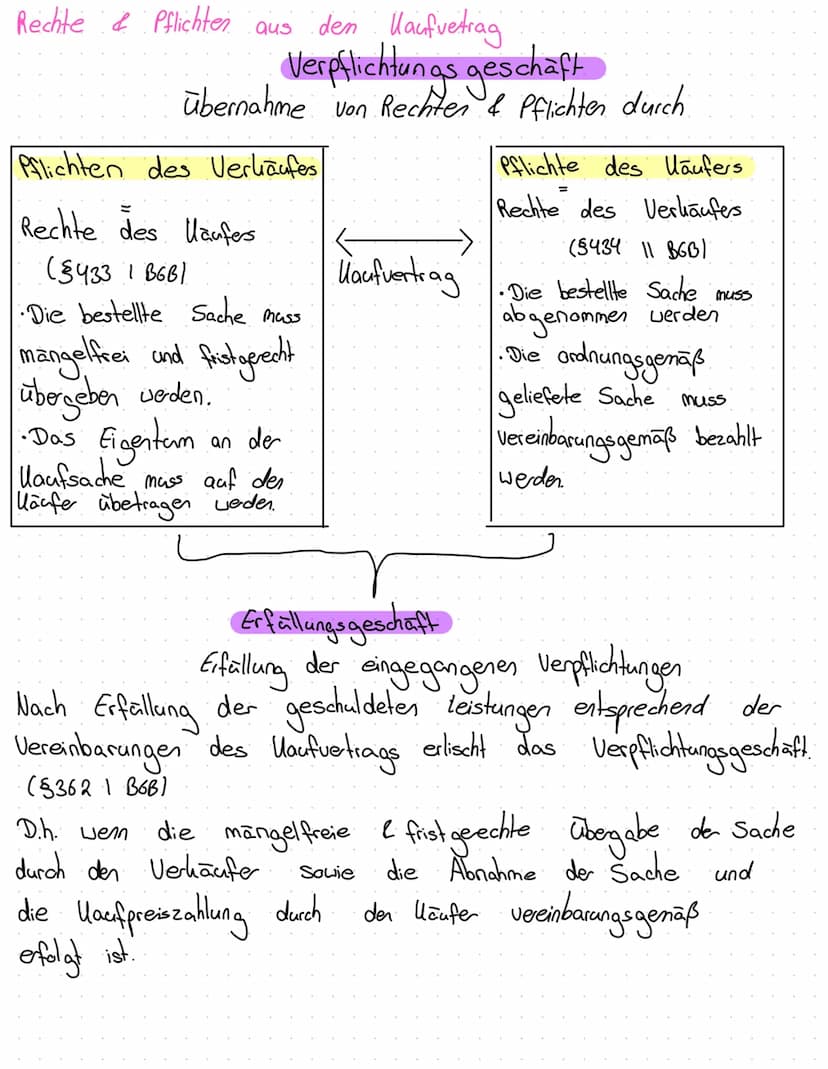 Rechte & Pflichten aus dem Kaufvetrag
Verpflichtungsgeschäft
Übernahme von Rechten & Pflichten durch
Pflichten des Verkäufes
=
Rechte des Käufers
(§433 I BGB)
·Die bestellte Sache muss
mängelfrei und fristgerecht
übergeben werden.
·Das Eigentum an der
Kaufsache muss auf den
Käufer übetragen weden.
Kaufvertrag
Pflichte des Käufers
=
Rechte des Verkäufers
(§434 II BGB)
·Die bestellte Sache muss
abgenommen werden
·Die ordnungsgemäß
geliefete Sache muss
vereinbarungsgemäß bezahlt
werden.
Erfüllungsgeschäft
Erfüllung der eingegangenen Verpflichtungen
Nach Erfüllung der geschuldeten Leistungen entsprechend der
Vereinbarungen des Kaufvertrags erlischt das Verpflichtungsgeschäft.
(§362 I BGB)
D.h. wenn die mängelfreie & fristgerechte Übergabe der Sache
durch den Verkäufer sowie die Abnahme der Sache und
die Kaufpreiszahlung durch den Käufer vereinbarungsgemäß
erfolgt ist.